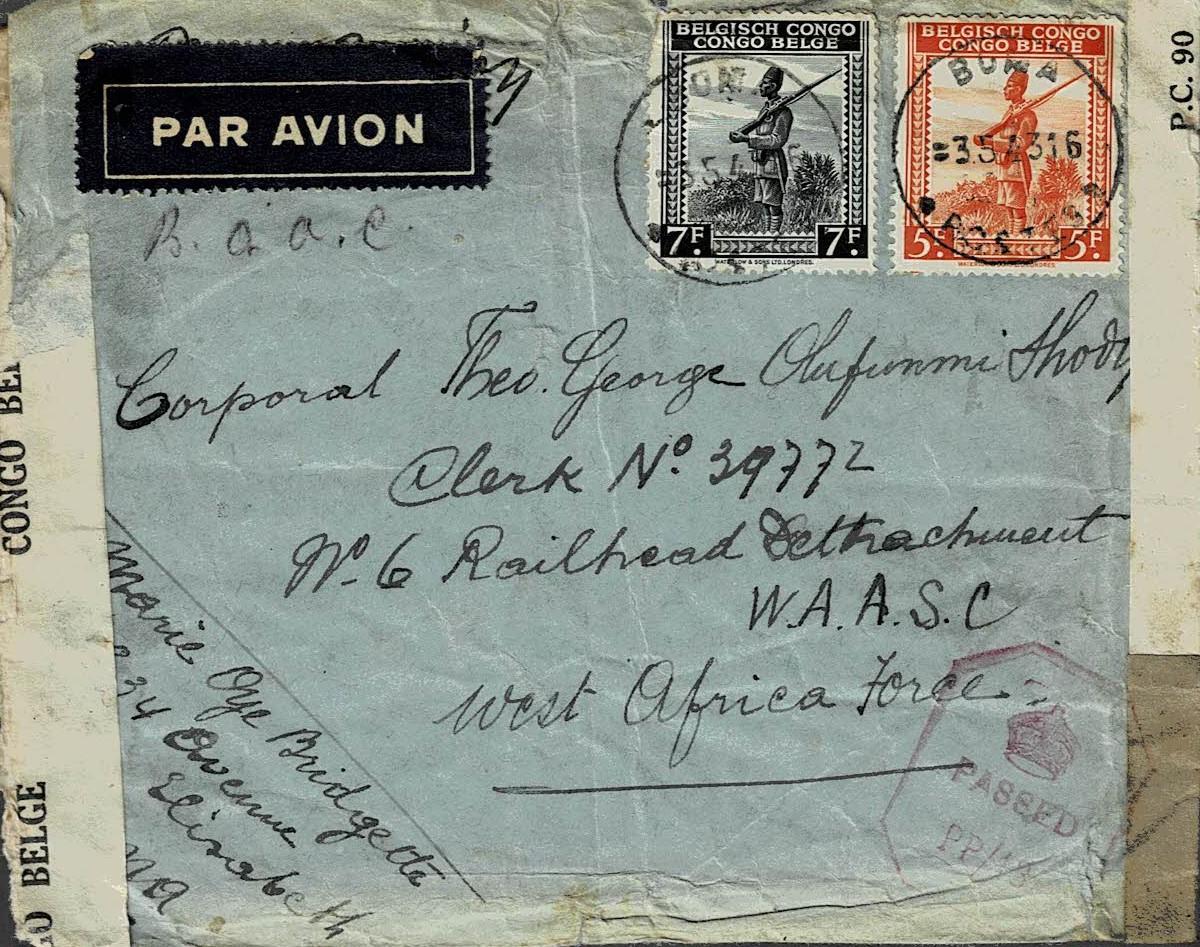 PAR AVION
B. O. A. C.
BELGISCH CONGO
CONGO BELGE
7F 7F
WATERLOW & SONS LTD. LONDRES.
BELGISCH CONGO
CONGO BELGE
5F 5F
BOMA
3.5.4316
P.C. 90
Corporal Theo. George Olufunmi Shody
Clerk Nº 39772
Nº. 6 Railhead Detthachment
W.A.A.S.C
West Africa Force
Marie Oye Bridgette
34 Avenue
Elisabeth
PASSED
CONGO BEL
GO BELGE